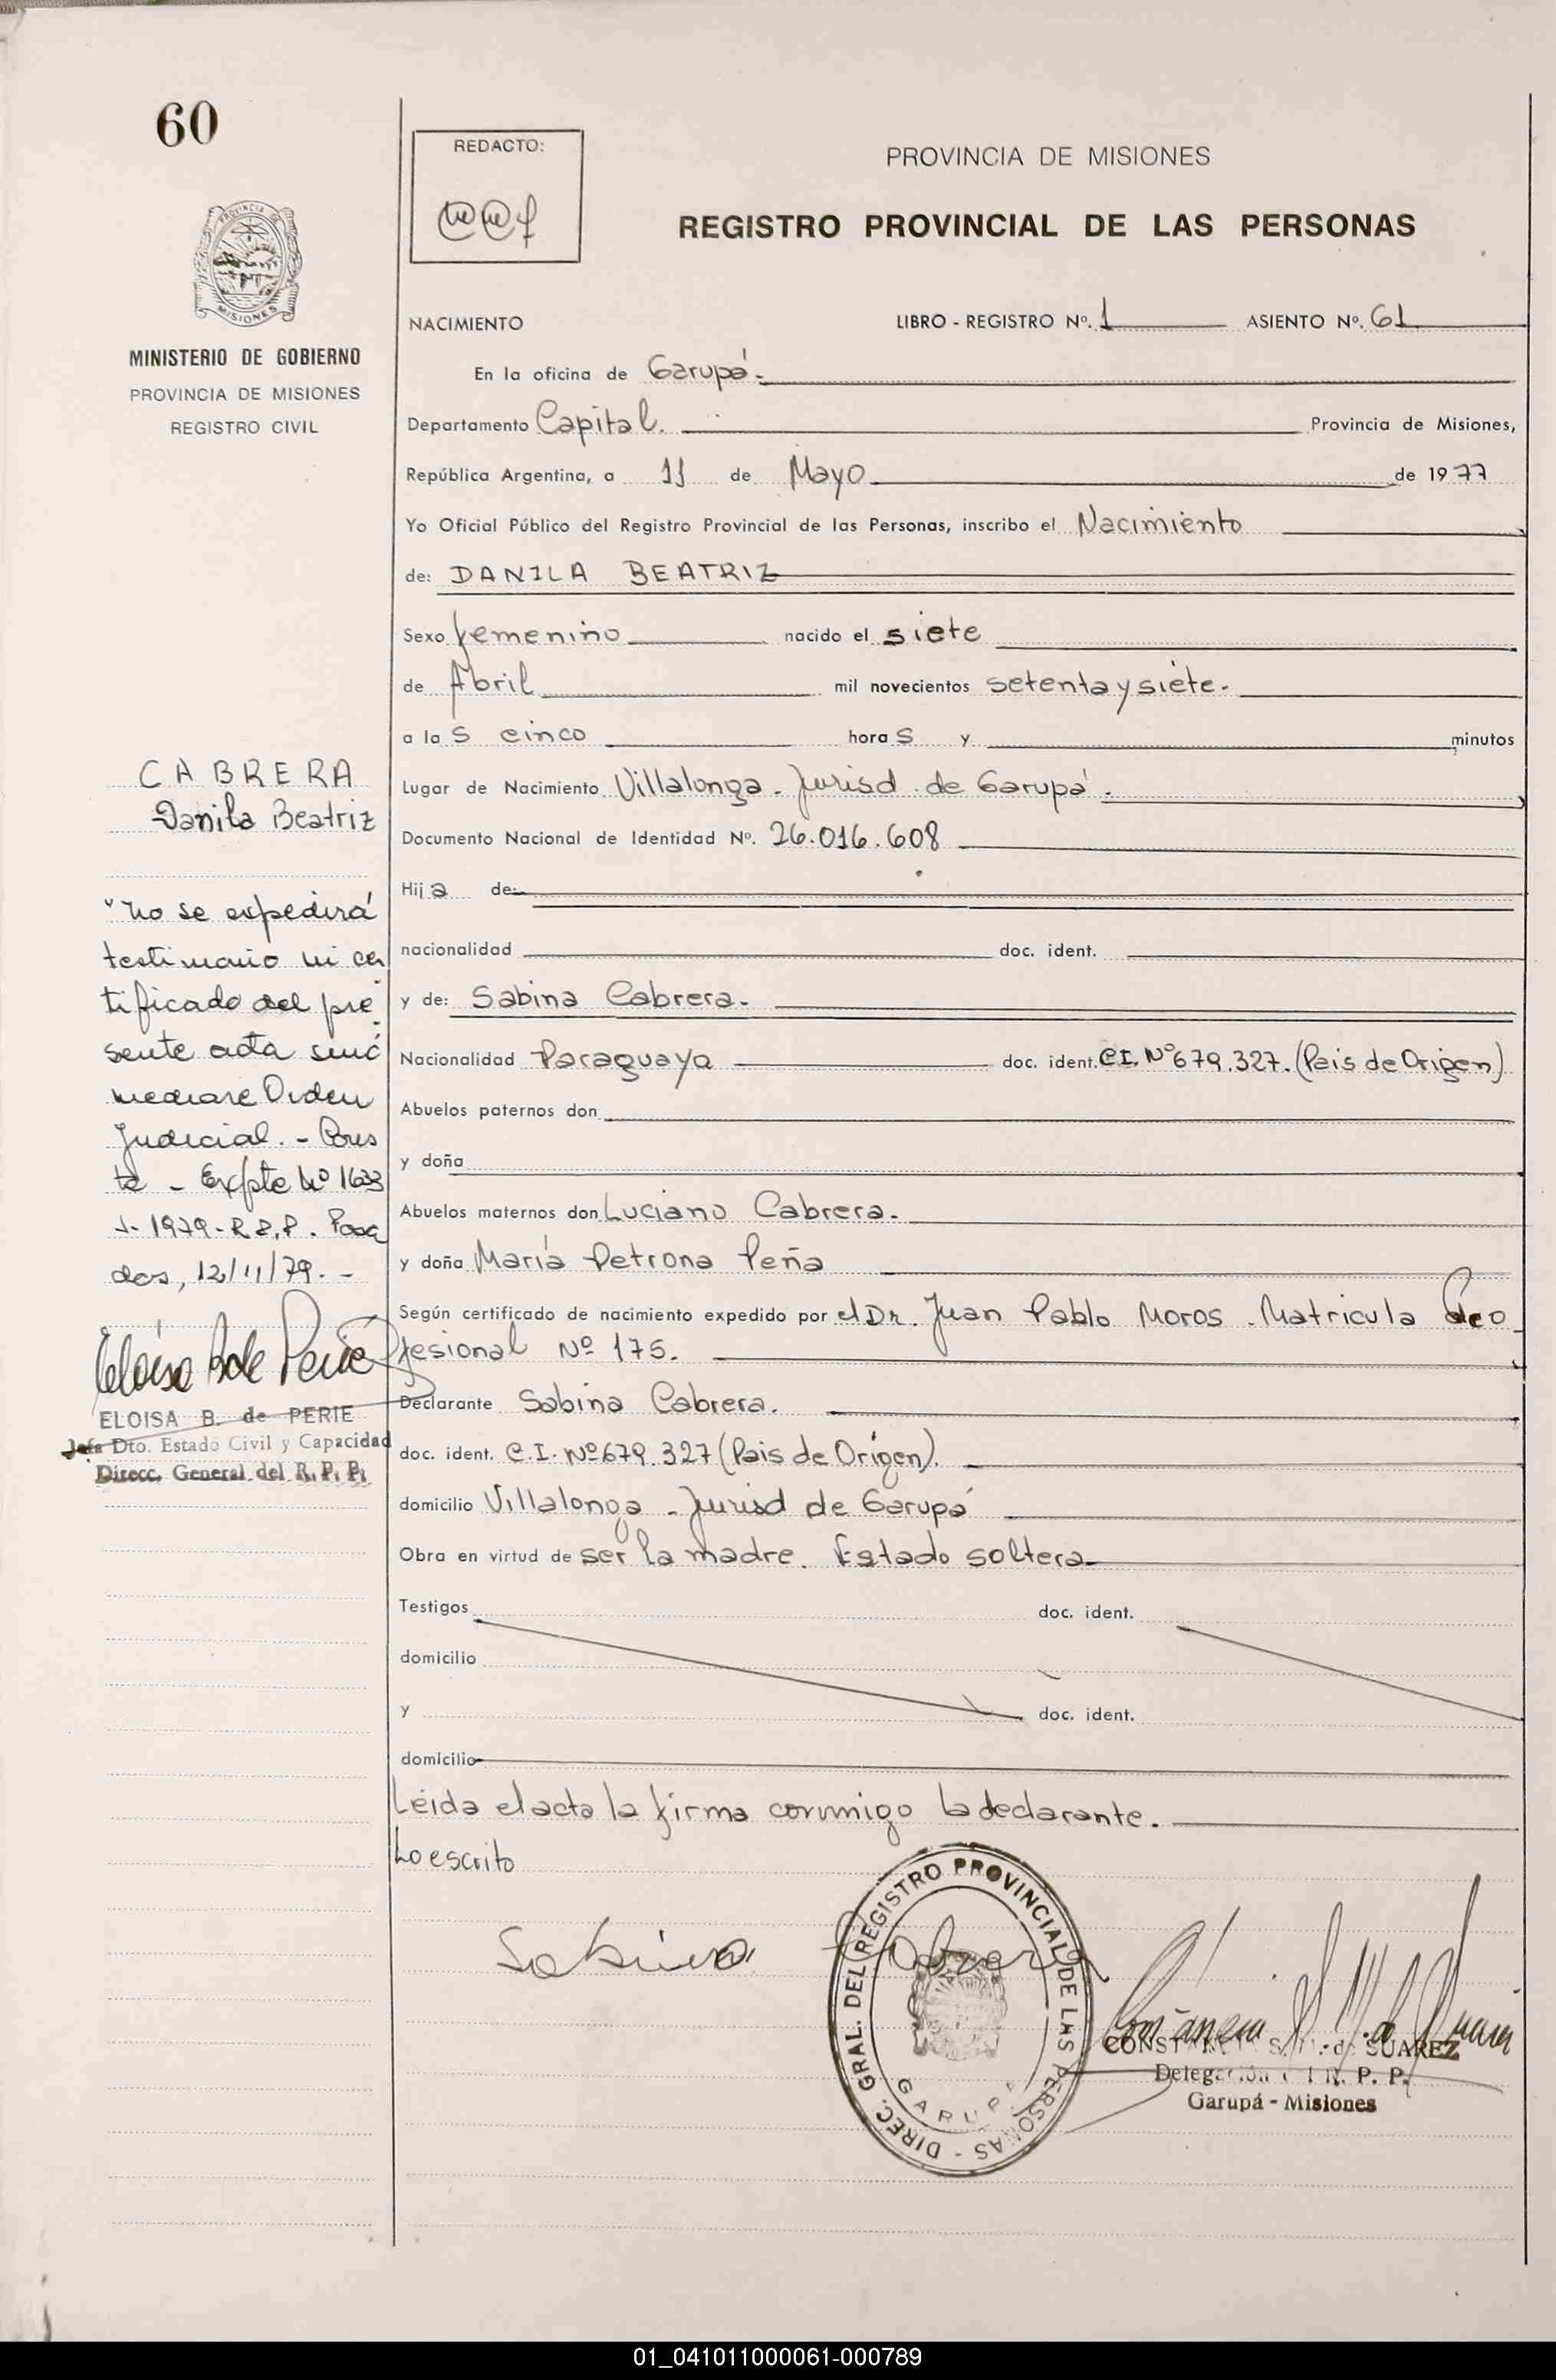 60
REDACTO:
PROVINCIA DE MISIONES
REGISTRO PROVINCIAL DE LAS PERSONAS
PROVINCIA DE
MISIONES
MINISTERIO DE GOBIERNO
PROVINCIA DE MISIONES
REGISTRO CIVIL
NACIMIENTO LIBRO - REGISTRO Nº. 1 ASIENTO Nº. 61
En la oficina de Garupá.
Departamento Capital. Provincia de Misiones,
República Argentina, a 11 de Mayo de 1977
Yo Oficial Público del Registro Provincial de las Personas, inscribo el Nacimiento
de: DANILA BEATRIZ
Sexo femenino nacido el siete
de Abril mil novecientos setenta y siete.
a las cinco horas y minutos
Lugar de Nacimiento Villalonga - Jurisd. de Garupá.
Documento Nacional de Identidad Nº. 26.016.608
Hija de:
nacionalidad doc. ident.
y de: Sabina Cabrera.
Nacionalidad Paraguaya doc. ident. C.I. Nº 679.327. (Pais de Origen)
Abuelos paternos don
y doña
Abuelos maternos don Luciano Cabrera.
y doña María Petrona Peña
Según certificado de nacimiento expedido por el Dr. Juan Pablo Moros. Matricula Pro
fesional Nº 175.
Declarante Sabina Cabrera.
doc. ident. C.I. Nº 679.327 (Pais de Orígen).
domicilio Villalonga - Jurisd de Garupá
Obra en virtud de ser la madre. Estado soltera
Testigos doc. ident.
domicilio
y doc. ident.
domicilio
Leida el acta la firma conmigo la declarante.
Lo escrito
Sabina Cabrera
DIREC. GRAL. DEL REGISTRO PROVINCIAL DE LAS PERSONAS -
GARUPA
SUAREZ
R. P. P.
Garupá - Misiones
CABRERA
Danila Beatriz
"No se expedirá
testimonio ni cer
tificado del pre
sente acta sino
mediare Orden
Judicial. - Cons
te - Expte Nº 1633
1979 - R.P.P. Posa
das, 12/11/79. -
ELOISA B. de PERIE
Jefa Dto. Estado Civil y Capacidad
Direcc. General del R. P. P.
01_041011000061-000789